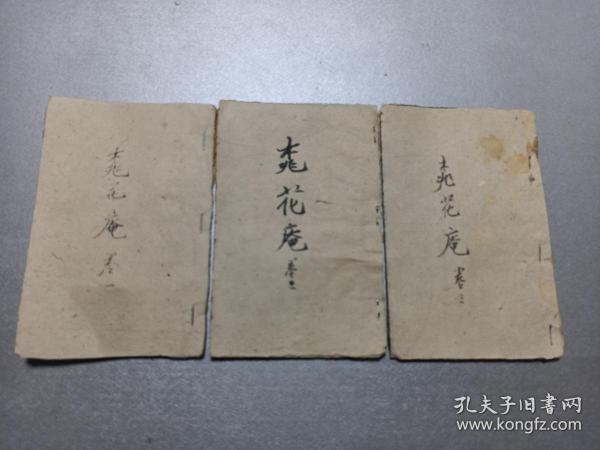 桃花庵 卷一
桃花庵 卷二
桃花庵 卷三
孔夫子旧书网
www.kongfz.com